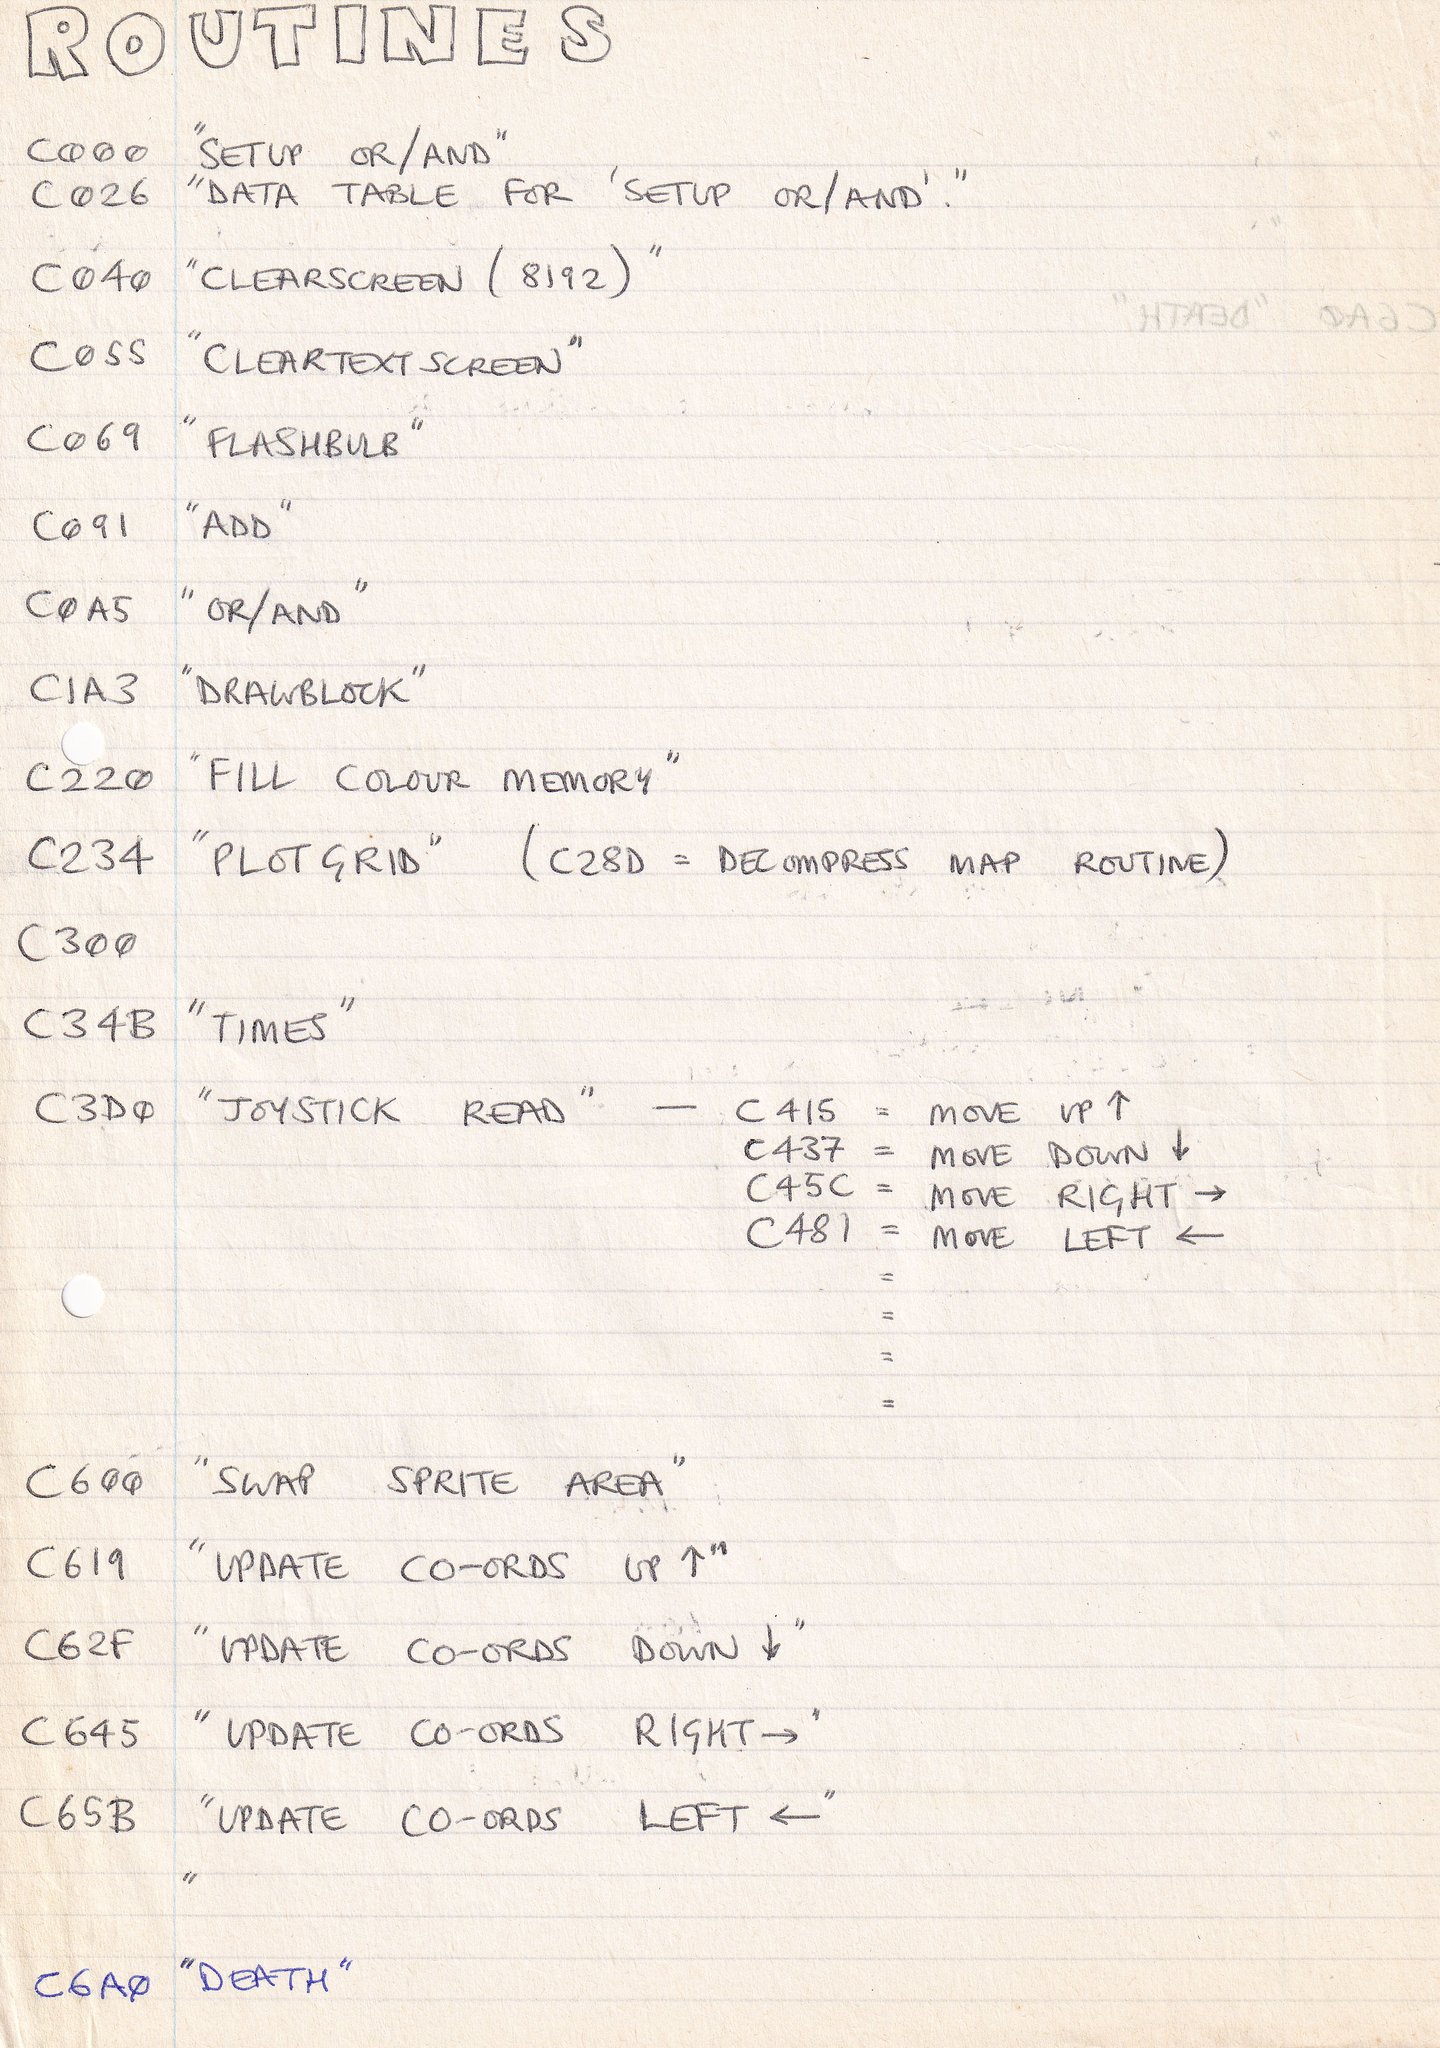 ROUTINES
C000 "SETUP OR/AND"
C026 "DATA TABLE FOR 'SETUP OR/AND'."
C040 "CLEARSCREEN (8192)"
C055 "CLEARTEXTSCREEN"
C6A0 "DEATH"
C069 "FLASHBULB"
C091 "ADD"
C0A5 "OR/AND"
C1A3 "DRAWBLOCK"
C220 "FILL COLOUR MEMORY"
C234 "PLOTGRID" (C28D = DECOMPRESS MAP ROUTINE)
C300
C34B "TIMES"
C3D0 "JOYSTICK READ" — C415 = MOVE UP ↑
C437 = MOVE DOWN ↓
C45C = MOVE RIGHT →
C481 = MOVE LEFT ←
=
=
=
=
C600 "SWAP SPRITE AREA"
C619 "UPDATE CO-ORDS UP ↑"
C62F "UPDATE CO-ORDS DOWN ↓"
C645 "UPDATE CO-ORDS RIGHT →'
C65B "UPDATE CO-ORDS LEFT ←"
"
C6A0 "DEATH"